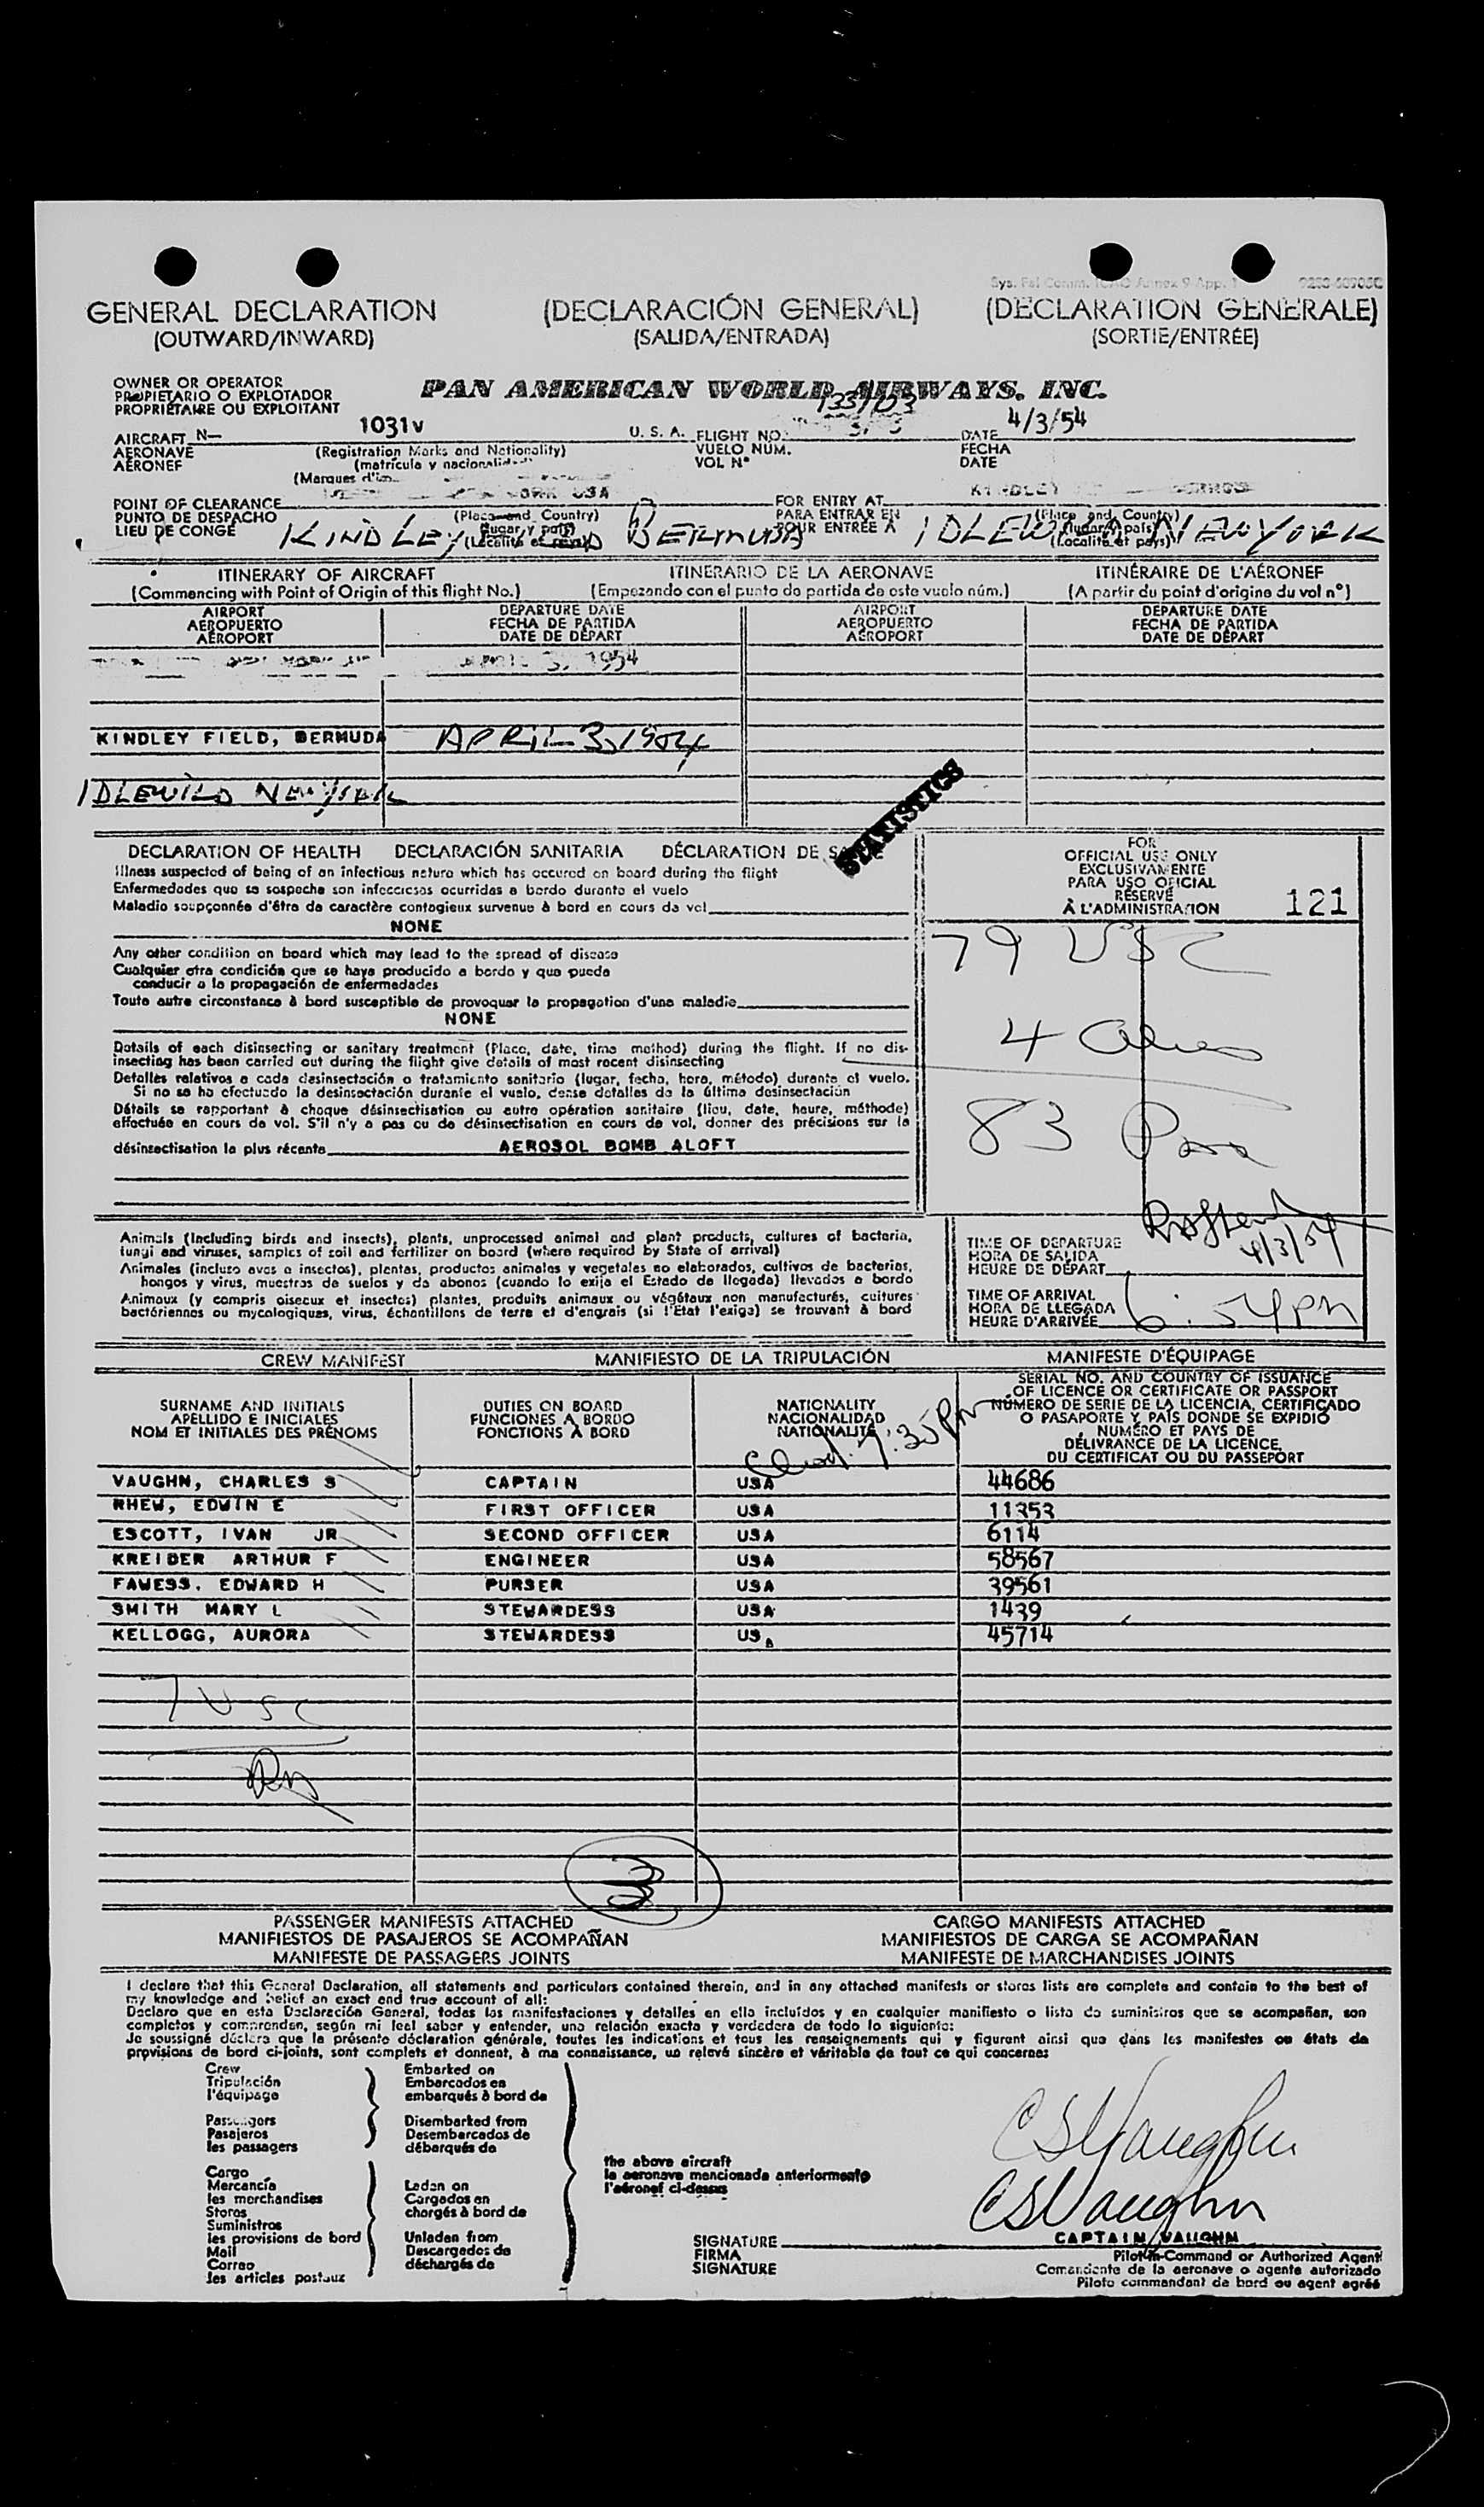 GENERAL DECLARATION (DECLARACIÓN GENERAL) (DÉCLARATION GÉNÉRALE)
(OUTWARD/INWARD) (SALIDA/ENTRADA) (SORTIE/ENTRÉE)
OWNER OR OPERATOR
PROPIETARIO O EXPLOTADOR
PROPRIÉTAIRE OU EXPLOITANT
PAN AMERICAN WORLD AIRWAYS, INC.
AIRCRAFT N— 1031V U. S. A. FLIGHT NO. DATE 4/3/54
AERONAVE (Registration Marks and Nationality) VUELO NÚM. FECHA
AÉRONEF (matrícula y VOL Nº DATE
(Marques
POINT OF CLEARANCE YORK USA FOR ENTRY AT KINDLEY
PUNTO DE DESPACHO (Place and Country) PARA ENTRAR EN (Place and Country)
LIEU DE CONGÉ KINDLEY BERMUDA POUR ENTRÉE À IDLEWILD NEW YORK
ITINERARY OF AIRCRAFT ITINERARIO DE LA AERONAVE ITINÉRAIRE DE L'AÉRONEF
(Commencing with Point of Origin of this flight No.) (Empezando con el punto de partida de este vuelo núm.) (A partir du point d'origine du vol nº)
AIRPORT DEPARTURE DATE AIRPORT DEPARTURE DATE
AEROPUERTO FECHA DE PARTIDA AEROPUERTO FECHA DE PARTIDA
AÉROPORT DATE DE DÉPART AÉROPORT DATE DE DÉPART
3, 1954
KINDLEY FIELD, BERMUDA APRIL 3, 1954
IDLEWILD NEW YORK
STATISTICS
DECLARATION OF HEALTH DECLARACIÓN SANITARIA DÉCLARATION DE
Illness suspected of being of an infectious nature which has occured on board during the flight
Enfermedades que se sospecha son infecciosas ocurridas a bordo durante el vuelo
Maladie soupçonnée d'être de caractère contagieux survenue à bord en cours de vol
NONE
Any other condition on board which may lead to the spread of disease
Cualquier otra condición que se haya producido a bordo y que pueda
conducir a la propagación de enfermedades
Toute autre circonstance à bord susceptible de provoquer la propagation d'une maladie
NONE
Details of each disinsecting or sanitary treatment (Place, date, time method) during the flight. If no dis-
insecting has been carried out during the flight give details of most recent disinsecting
Detalles relativos a cada desinsectación o tratamiento sanitario (lugar, fecha, hora, método) durante el vuelo.
Si no se ha efectuado la desinsectación durante el vuelo, dense detalles de la última desinsectación
Détails se rapportant à chaque désinsectisation ou autre opération sanitaire (lieu, date, heure, méthode)
effectuée en cours de vol. S'il n'y a pas eu de désinsectisation en cours de vol, donner des précisions sur la
désinsectisation la plus récente AEROSOL BOMB ALOFT
FOR
OFFICIAL USE ONLY
EXCLUSIVAMENTE
PARA USO OFICIAL
RÉSERVÉ
À L'ADMINISTRATION 121
79 USC
4 Aliens
83 Pax
Animals (Including birds and insects), plants, unprocessed animal and plant products, cultures of bacteria,
fungi and viruses, samples of soil and fertilizer on board (where required by State of arrival)
Animales (incluso aves e insectos), plantas, productos animales y vegetales no elaborados, cultivos de bacterias,
hongos y virus, muestras de suelos y de abonos (cuando lo exija el Estado de llegada) llevados a bordo
Animaux (y compris oiseaux et insectes) plantes, produits animaux ou végétaux non manufacturés, cultures
bactériennes ou mycologiques, virus, échantillons de terre et d'engrais (si l'État l'exige) se trouvant à bord
TIME OF DEPARTURE
HORA DE SALIDA 4/3/54
HEURE DE DÉPART
TIME OF ARRIVAL
HORA DE LLEGADA
HEURE D'ARRIVÉE 6:54 PM
CREW MANIFEST MANIFIESTO DE LA TRIPULACIÓN MANIFESTE D'ÉQUIPAGE
SURNAME AND INITIALS
APELLIDO E INICIALES
NOM ET INITIALES DES PRÉNOMS
DUTIES ON BOARD
FUNCIONES A BORDO
FONCTIONS À BORD
NATIONALITY
NACIONALIDAD
NATIONALITÉ
7:35 PM
SERIAL NO. AND COUNTRY OF ISSUANCE
OF LICENCE OR CERTIFICATE OR PASSPORT
NÚMERO DE SERIE DE LA LICENCIA, CERTIFICADO
O PASAPORTE Y PAÍS DONDE SE EXPIDIÓ
NUMÉRO ET PAYS DE
DÉLIVRANCE DE LA LICENCE,
DU CERTIFICAT OU DU PASSEPORT
VAUGHN, CHARLES S CAPTAIN USA 44686
RHEW, EDWIN E FIRST OFFICER USA 11353
ESCOTT, IVAN JR SECOND OFFICER USA 6114
KREIDER ARTHUR F ENGINEER USA 58567
FAWESS. EDWARD H PURSER USA 39561
SMITH MARY L STEWARDESS USA 1439
KELLOGG, AURORA STEWARDESS USA 45714
7 USC
PASSENGER MANIFESTS ATTACHED CARGO MANIFESTS ATTACHED
MANIFIESTOS DE PASAJEROS SE ACOMPAÑAN MANIFIESTOS DE CARGA SE ACOMPAÑAN
MANIFESTE DE PASSAGERS JOINTS MANIFESTE DE MARCHANDISES JOINTS
I declare that this General Declaration, all statements and particulars contained therein, and in any attached manifests or stores lists are complete and contain to the best of
my knowledge and belief an exact and true account of all:
Declaro que en esta Declaración General, todas las manifestaciones y detalles en ella incluídos y en cualquier manifiesto o lista de suministros que se acompañan, son
completos y comprenden, según mi leal saber y entender, una relación exacta y verdadera de todo lo siguiente:
Je soussigné déclare que la présente déclaration générale, toutes les indications et tous les renseignements qui y figurent ainsi que dans les manifestes ou états de
provisions de bord ci-joints, sont complets et donnent, à ma connaissance, un relevé sincère et véritable de tout ce qui concerne:
Crew Embarked on
Tripulación Embarcados en
l'équipage embarqués à bord de
Passengers Disembarked from
Pasajeros Desembarcados de
les passagers débarqués de
Cargo
Mercancía Laden on
les marchandises Cargados en
Stores chargés à bord de
Suministros
les provisions de bord Unladen from
Mail Descargados de
Correo déchargés de
les articles postaux
the above aircraft
la aeronave mencionada anteriormente
l'aéronef ci-dessus
CSVaughn
CSVaughn
SIGNATURE CAPTAIN VAUGHN
FIRMA Pilot-in-Command or Authorized Agent
SIGNATURE Comandante de la aeronave o agente autorizado
Pilote commandant de bord ou agent agréé